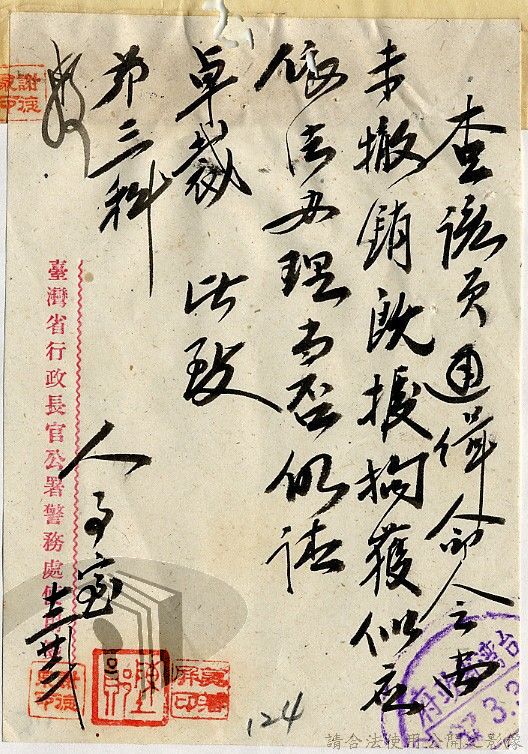 查該員通緝命人之書
未撤銷既援拘獲似应
依法办理当否仍請
卓裁 此致
第三科
人事室
臺灣省行政長官公署警務處
124
請合法使用公開之影像